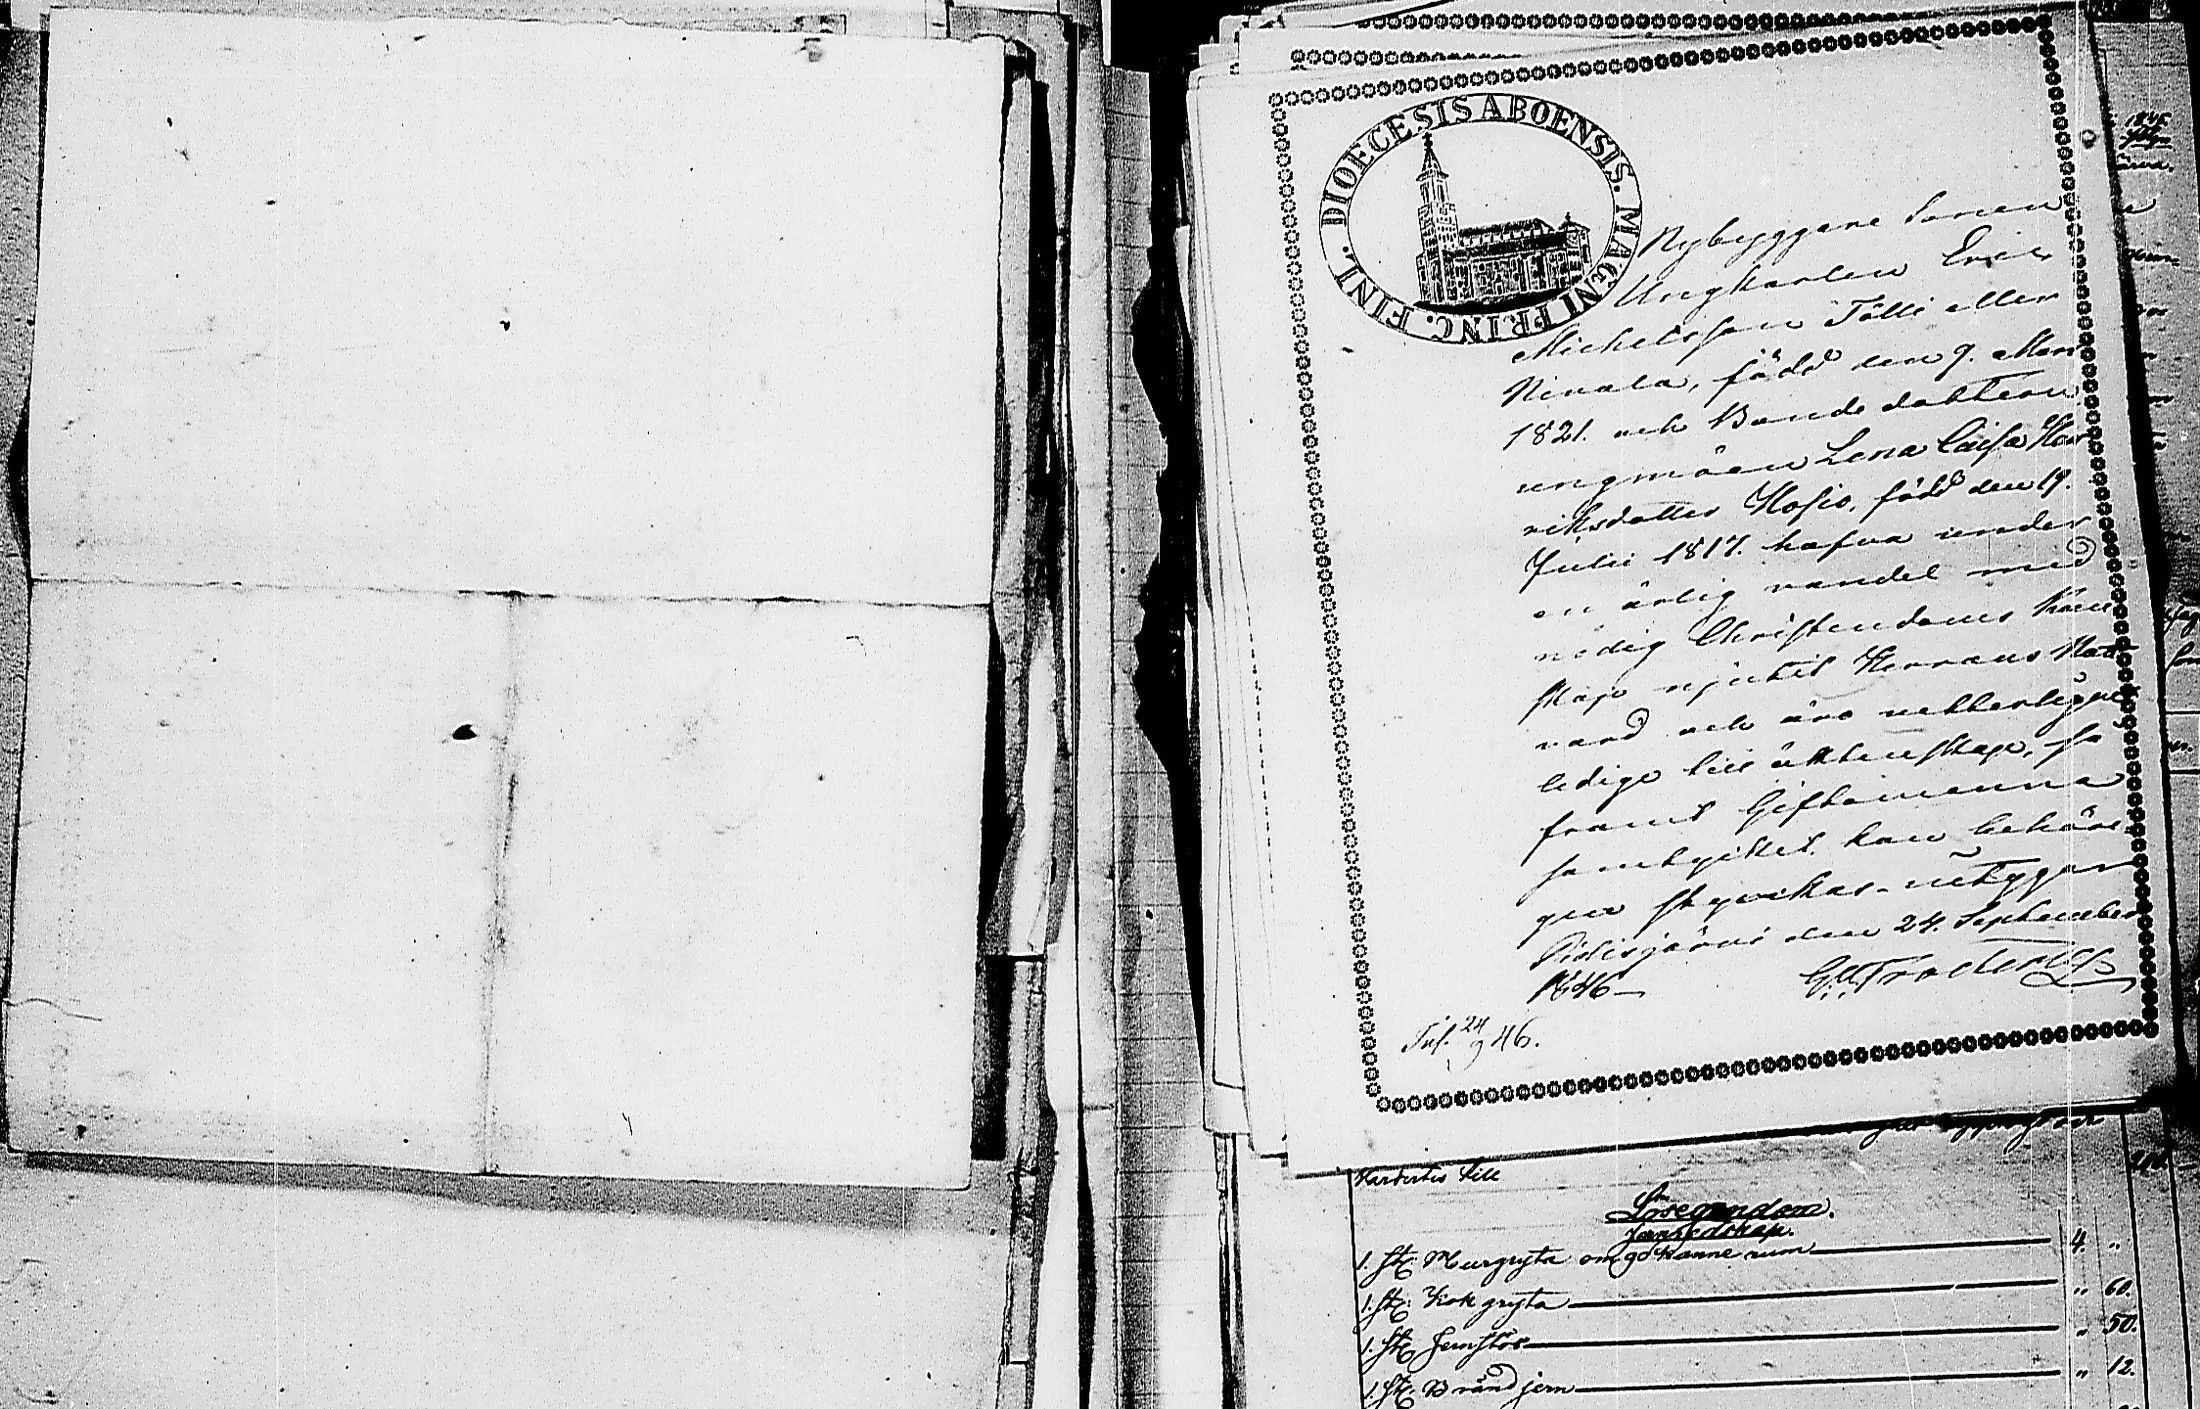 DIOECESIS ABOENSIS. MAGNI PRINC. FINL.
Nybyggare Sonen
Ungkarlen Eric
Michelsson Tölli eller
Nivala, född den 9. Mars
1821. och Bonde dottern
ungmöen Lena Caisa Hen
riksdotter Hosio, född den 19.
Julii 1817. hafva under
en ärlig vandel med
nödig Christendoms Kun
skap njutit Herrans Natt
vard och äro
ledige till äktenskap, så
framt Giftomanna
samtycket kan behöri
gen styrkas
Pidisjärvi den 24. September
1846
24/9 46.
till
Lösegendom.
Jernredskap.
1. st: Murgryta om 90 kanne rum 4. "
1. st: Kokgryta " 60.
1. st: " 50.
1. st: Brändjern " 12.